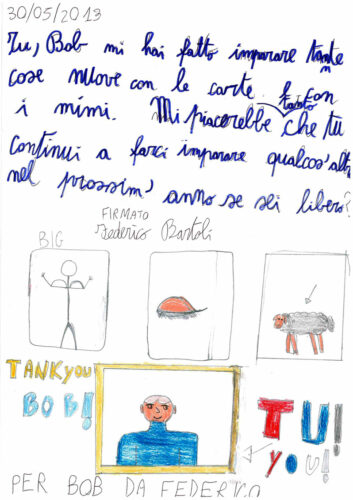 30/05/2013
Tu, Bob mi hai fatto imparare tante
cose nuove con le carte e con
i mimi. Mi piacerebbe tanto che tu
continui a farci imparare qualcos'altro
nel prossim' anno se sei libero?
FIRMATO
Federico Bartoli
BIG
TANKyou
BOB!
TU!
you!
PER BOB DA FEDERICO